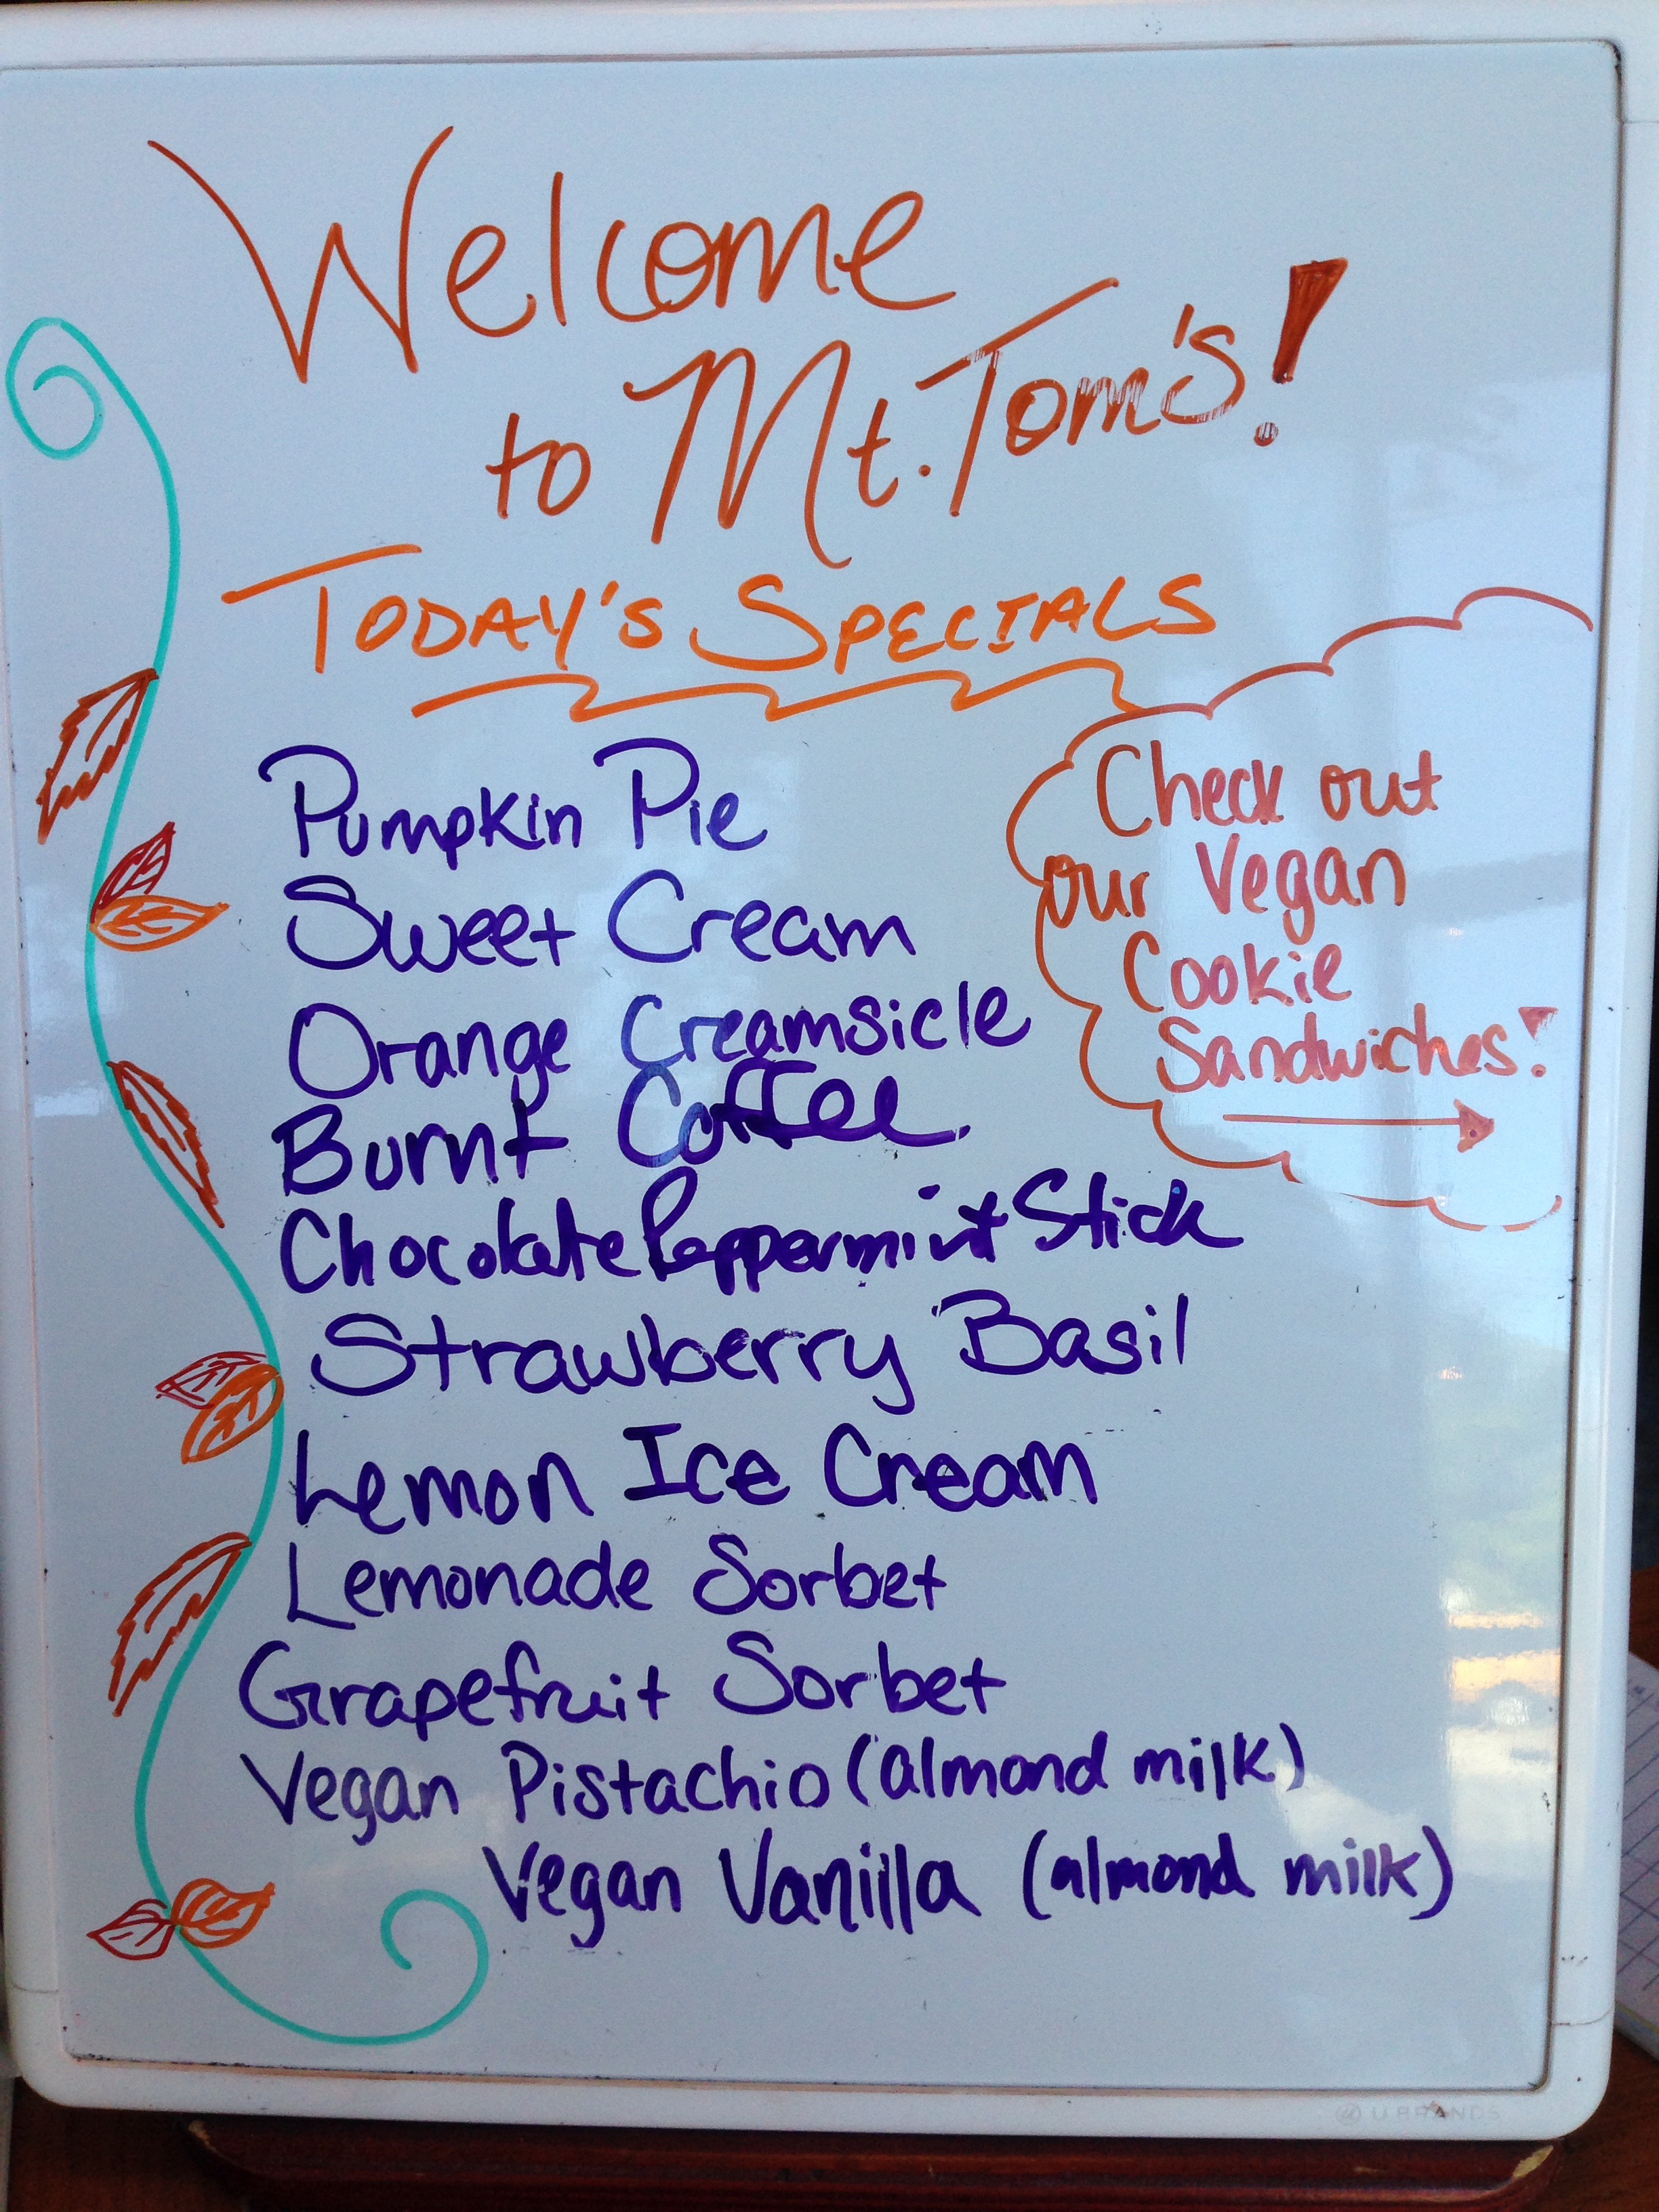 Welcome
to Mt. Tom's!
TODAY'S SPECIALS
Pumpkin Pie
Sweet Cream
Orange Creamsicle
Burnt Coffee
Chocolate Peppermint Stick
Strawberry Basil
Lemon Ice Cream
Lemonade Sorbet
Grapefruit Sorbet
Vegan Pistachio (almond milk)
Vegan Vanilla (almond milk)
Check out
our Vegan
Cookie
Sandwiches!
U BRANDS